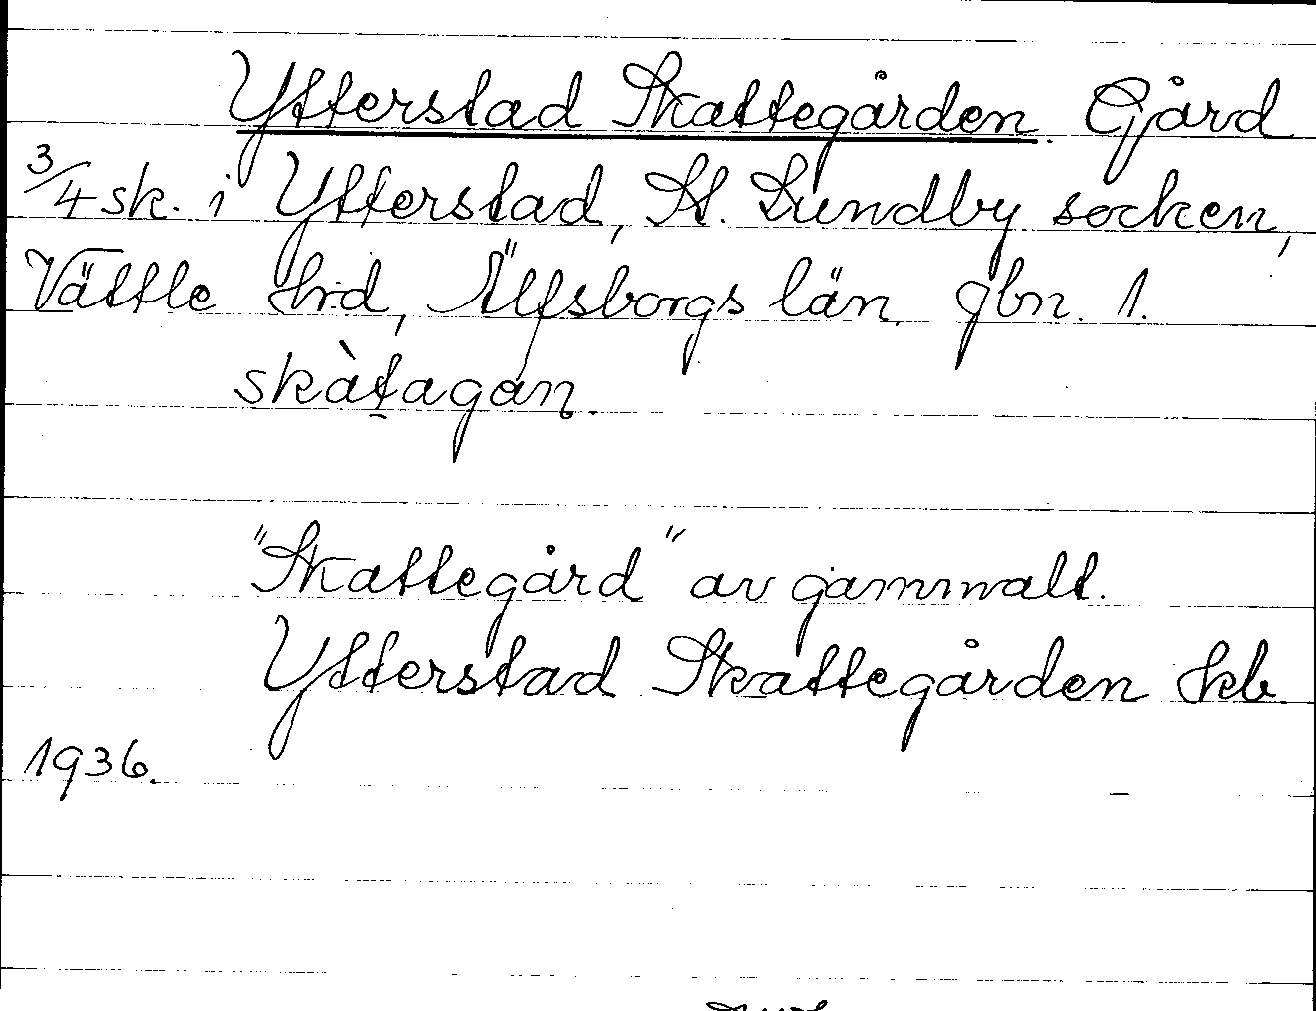 Ytterstad Skattegården. Gård
3/4 sk. i Ytterstad, St. Lundby socken,
Vättle hrd, Älfsborgs län. gbn. 1.
skàtagan.
"Skattegård" av gammalt.
Ytterstad Skattegården Skb
1936.